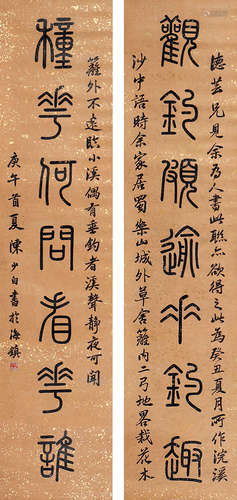 觀釣頗逾垂釣趣
德芸兄見余為人書此聯亦欲得之此為癸丑夏月所作浣溪
沙中語時余家居蜀樂山城外草舍籬內二弓地畧栽花木
種花何問看花誰
籬外不遠臨小溪偶有垂釣者溪聲靜夜可聞
庚午首夏陳少白書於海鎮